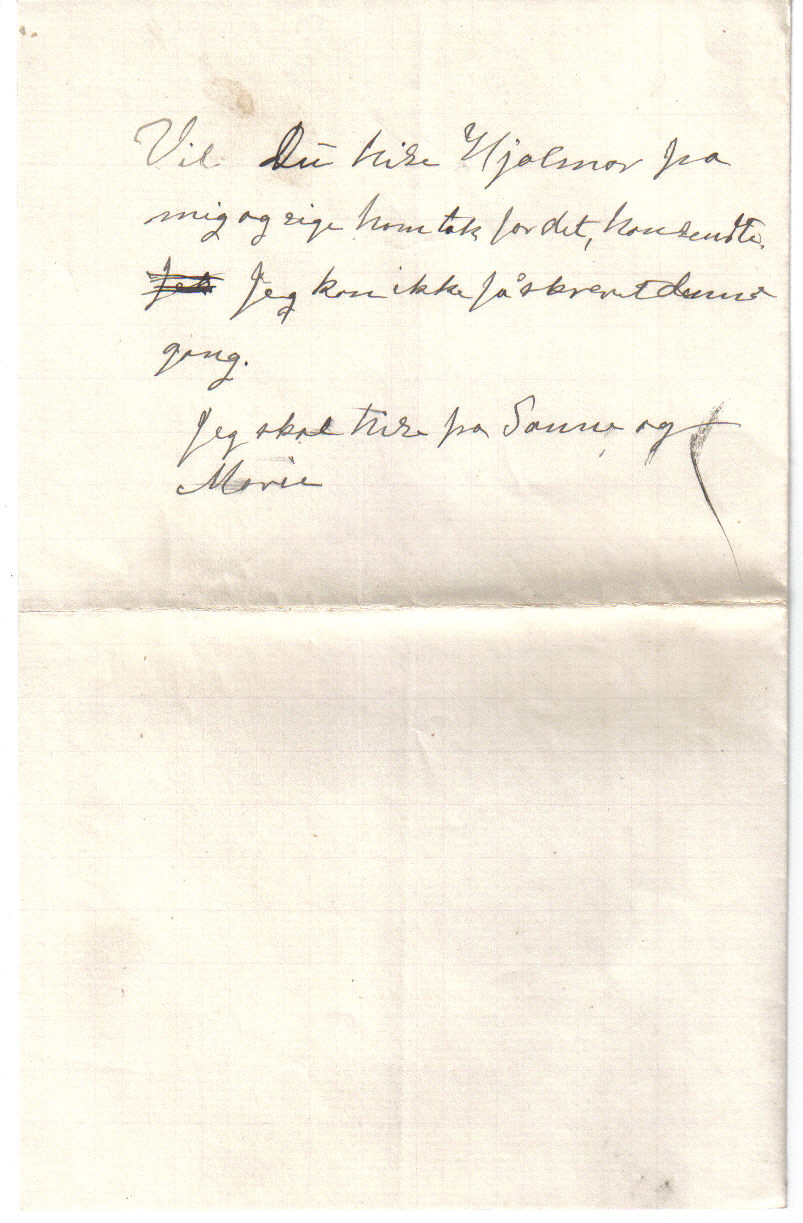 Vil Du hilse Hjalmar fra
mig og sige ham tak for det, han sendte.
Jeg Jeg kan ikke få skrevet denne
gang.
Jeg skal hilse fra Sanne og
Marie